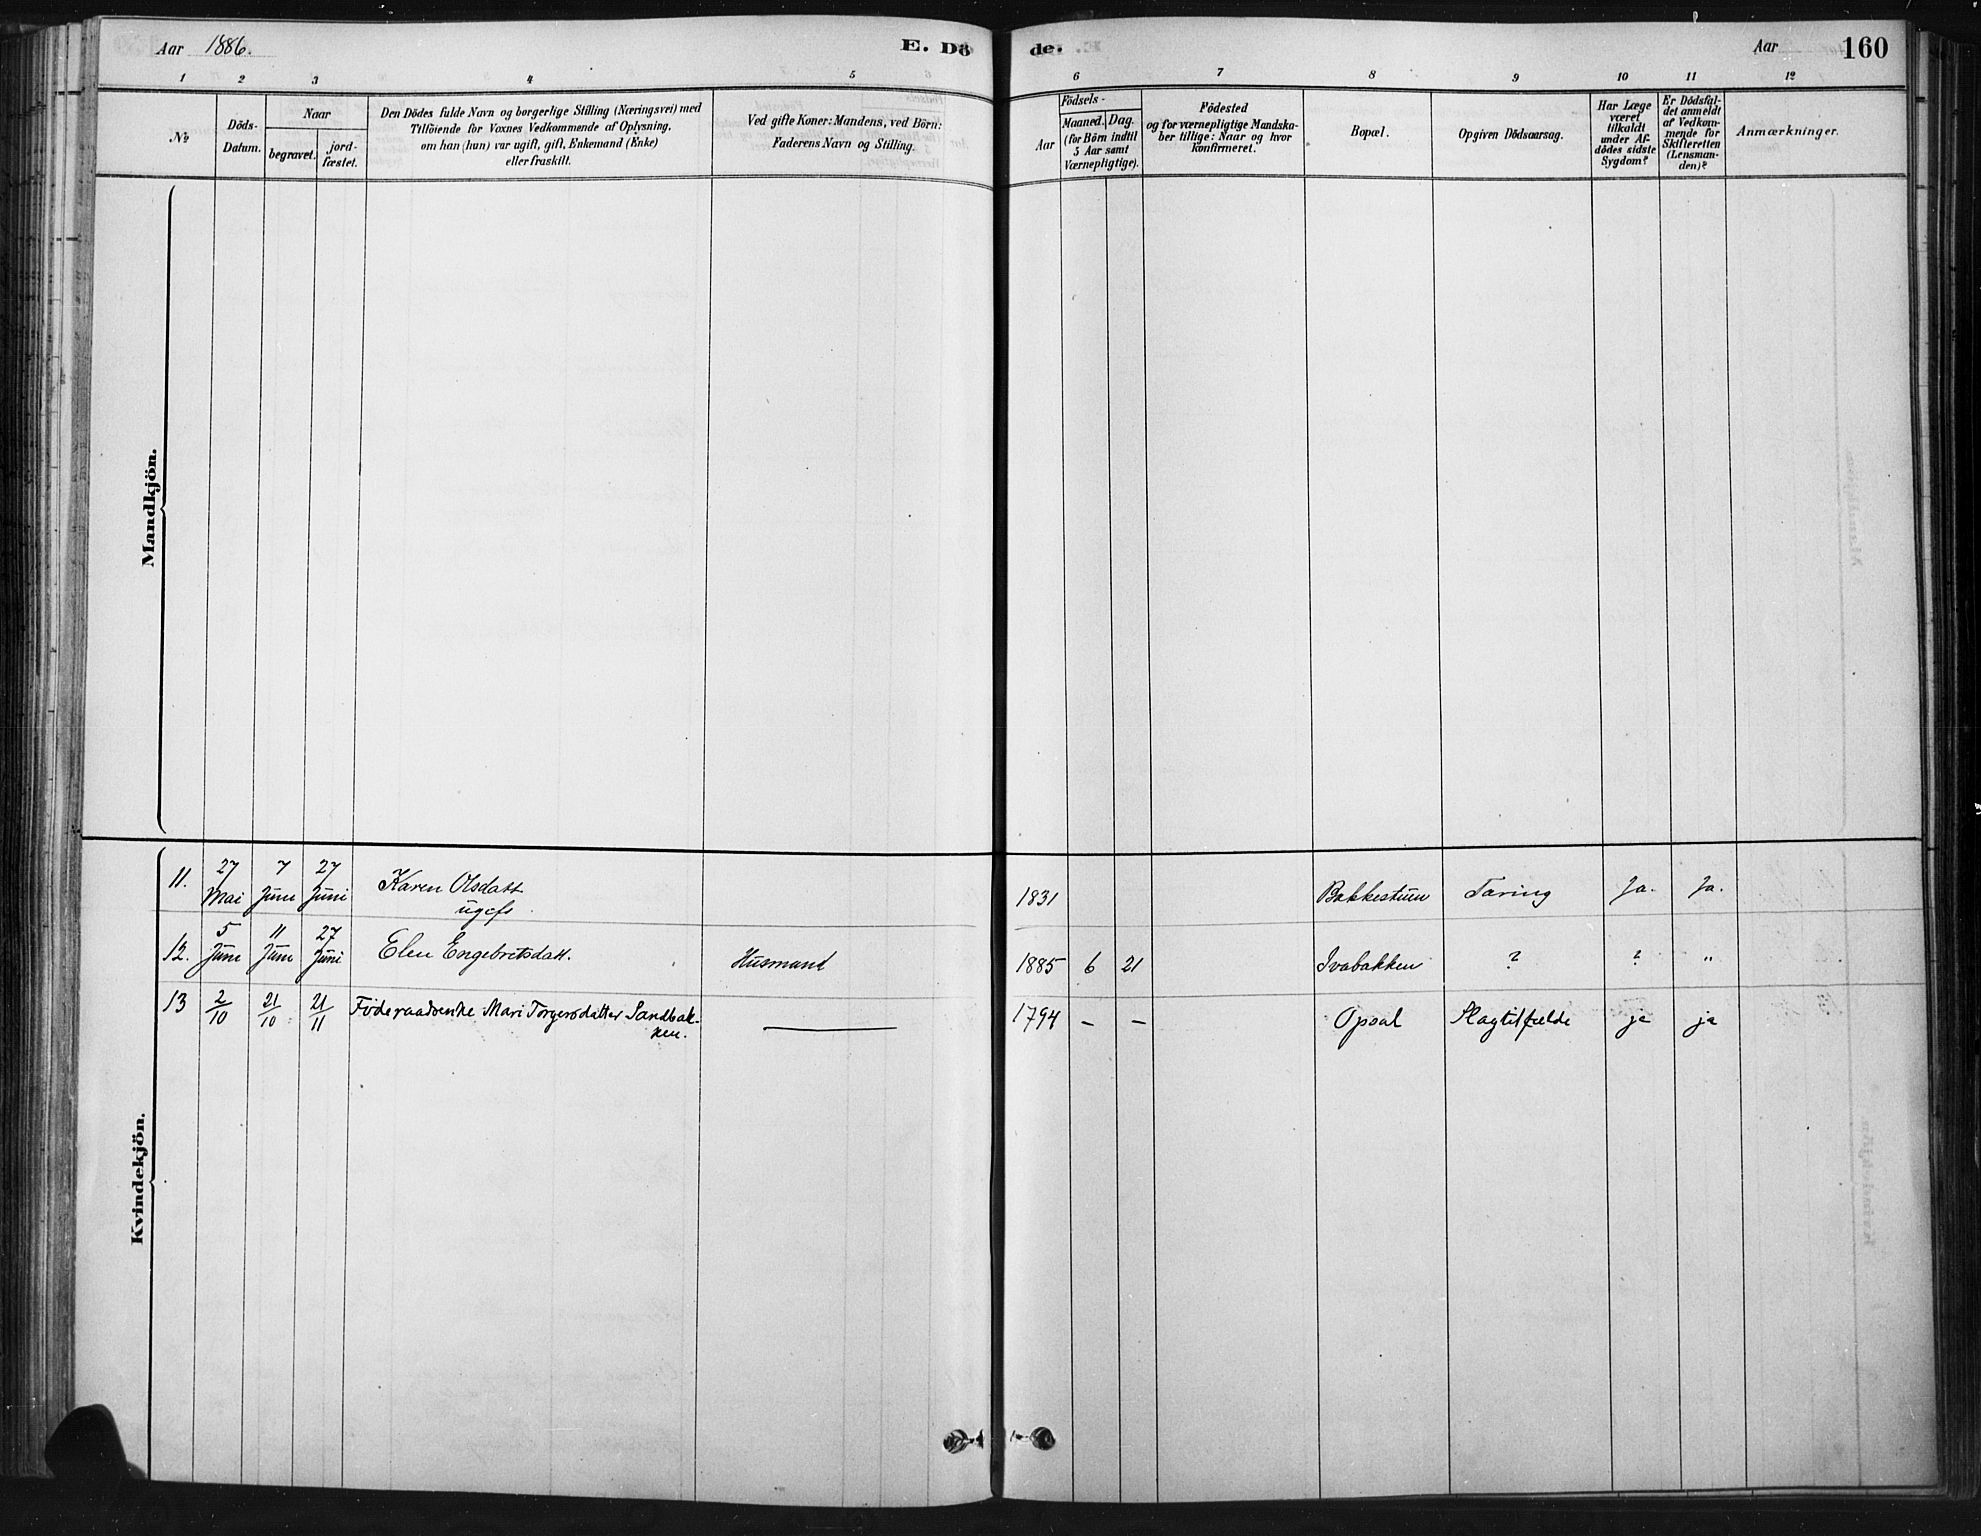 Aar 1886.
E. Dö
de.
Aar
160
1 2 3 4 5
6 7 8 9 10 11 12
№
Döds-
Datum.
Naar
begravet.
jord-
fæstet.
Den Dödes fulde Navn og borgerlige Stilling (Næringsvei) med
Tilföiende for Voxnes Vedkommende af Oplysning,
om han (hun) var ugift, gift, Enkemand (Enke)
eller fraskilt.
Ved gifte Koner: Mandens, ved Börn:
Faderens Navn og Stilling.
Aar
Födsels-
Maaned. Dag.
(for Börn indtil
5 Aar samt
Værnepligtige).
Födested
og for værnepligtige Mandska-
ber tillige: Naar og hvor
konfirmeret.
Bopæl.
Opgiven Dödsaarsag.
Har Læge
været
tilkaldt
under Af-
dödes sidste
Sygdom?
Er Dödsfal-
det anmeldt
af Vedkom-
mende for
Skifteretten
(Lensman-
den)?
Anmærkninger.
Mandkjön.
Kvindekjön.
11. 27 Mai 7 Juni 27 Juni Karen Olsdatt 1831 Bakkestuen Tæring Ja. Ja.
ugift
12. 5 Juni 11 Juni 27 Juni Elen Engebretsdatt. Husmand 1885 6 21 Ivabakken ? ? "
13 2/10 21/10 21/11 Föderaadsenke Mari Torgersdatter Sandbak- 1794 – – Opsal Slagtilfælde ja ja
ken.